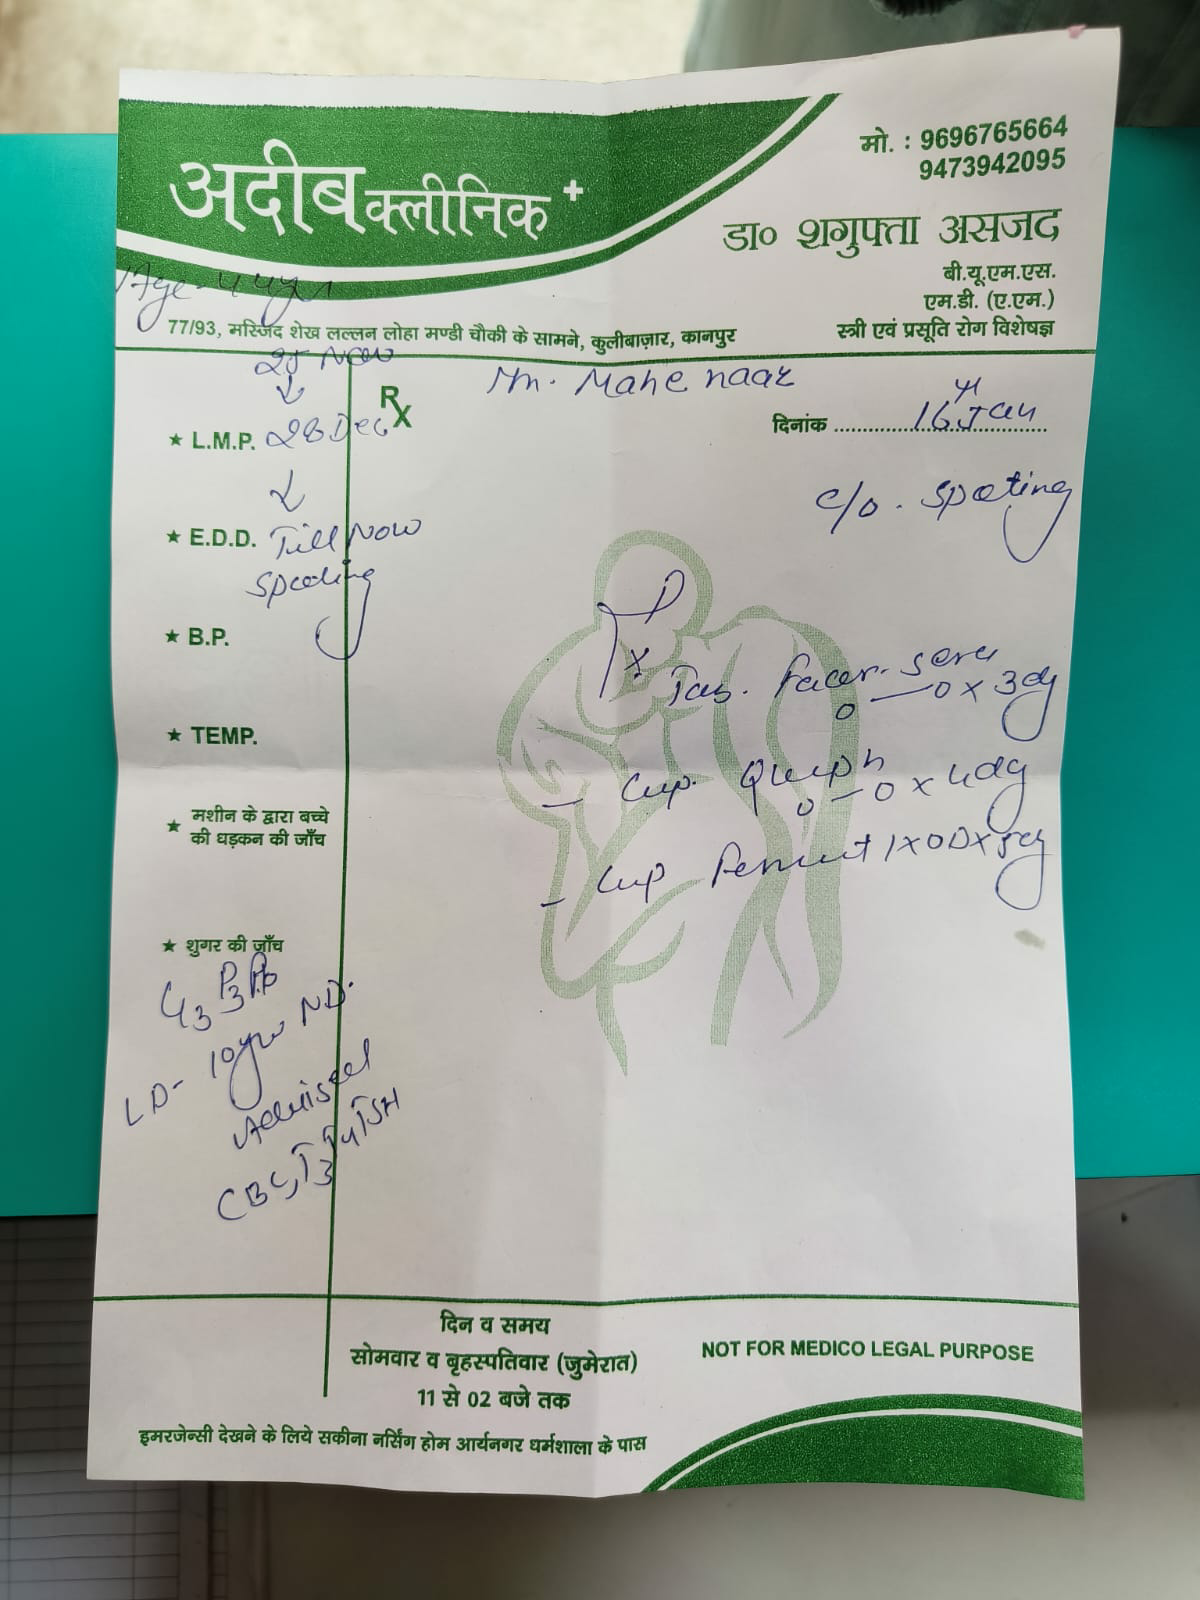 अदीब क्लीनिक +
मो. : 9696765664
9473942095
डा० शगुफ्ता असजद
बी.यू.एम.एस.
एम.डी. (ए.एम.)
स्त्री एवं प्रसूति रोग विशेषज्ञ
Age - 44yr
77/93, मस्जिद शेख लल्लन लोहा मण्डी चौकी के सामने, कुलीबाज़ार, कानपुर
Mahe naaz
25 Nov
Rx
दिनांक 16 Jan
★ L.M.P. 28 Dec
c/o. spoting
★ E.D.D. Till Now
spoting
★ B.P.
Tab.
0 — 0 x 3dy
★ TEMP.
Cap.
0 — 0 x 4dy
★ मशीन के द्वारा बच्चे
की धड़कन की जाँच
Cap 1 x OD x
★ शुगर की जाँच
LD - 10yr ND.
Advised
CBC, T3 T4 TSH
दिन व समय
सोमवार व बृहस्पतिवार (जुमेरात)
11 से 02 बजे तक
NOT FOR MEDICO LEGAL PURPOSE
इमरजेन्सी देखने के लिये सकीना नर्सिंग होम आर्यनगर धर्मशाला के पास